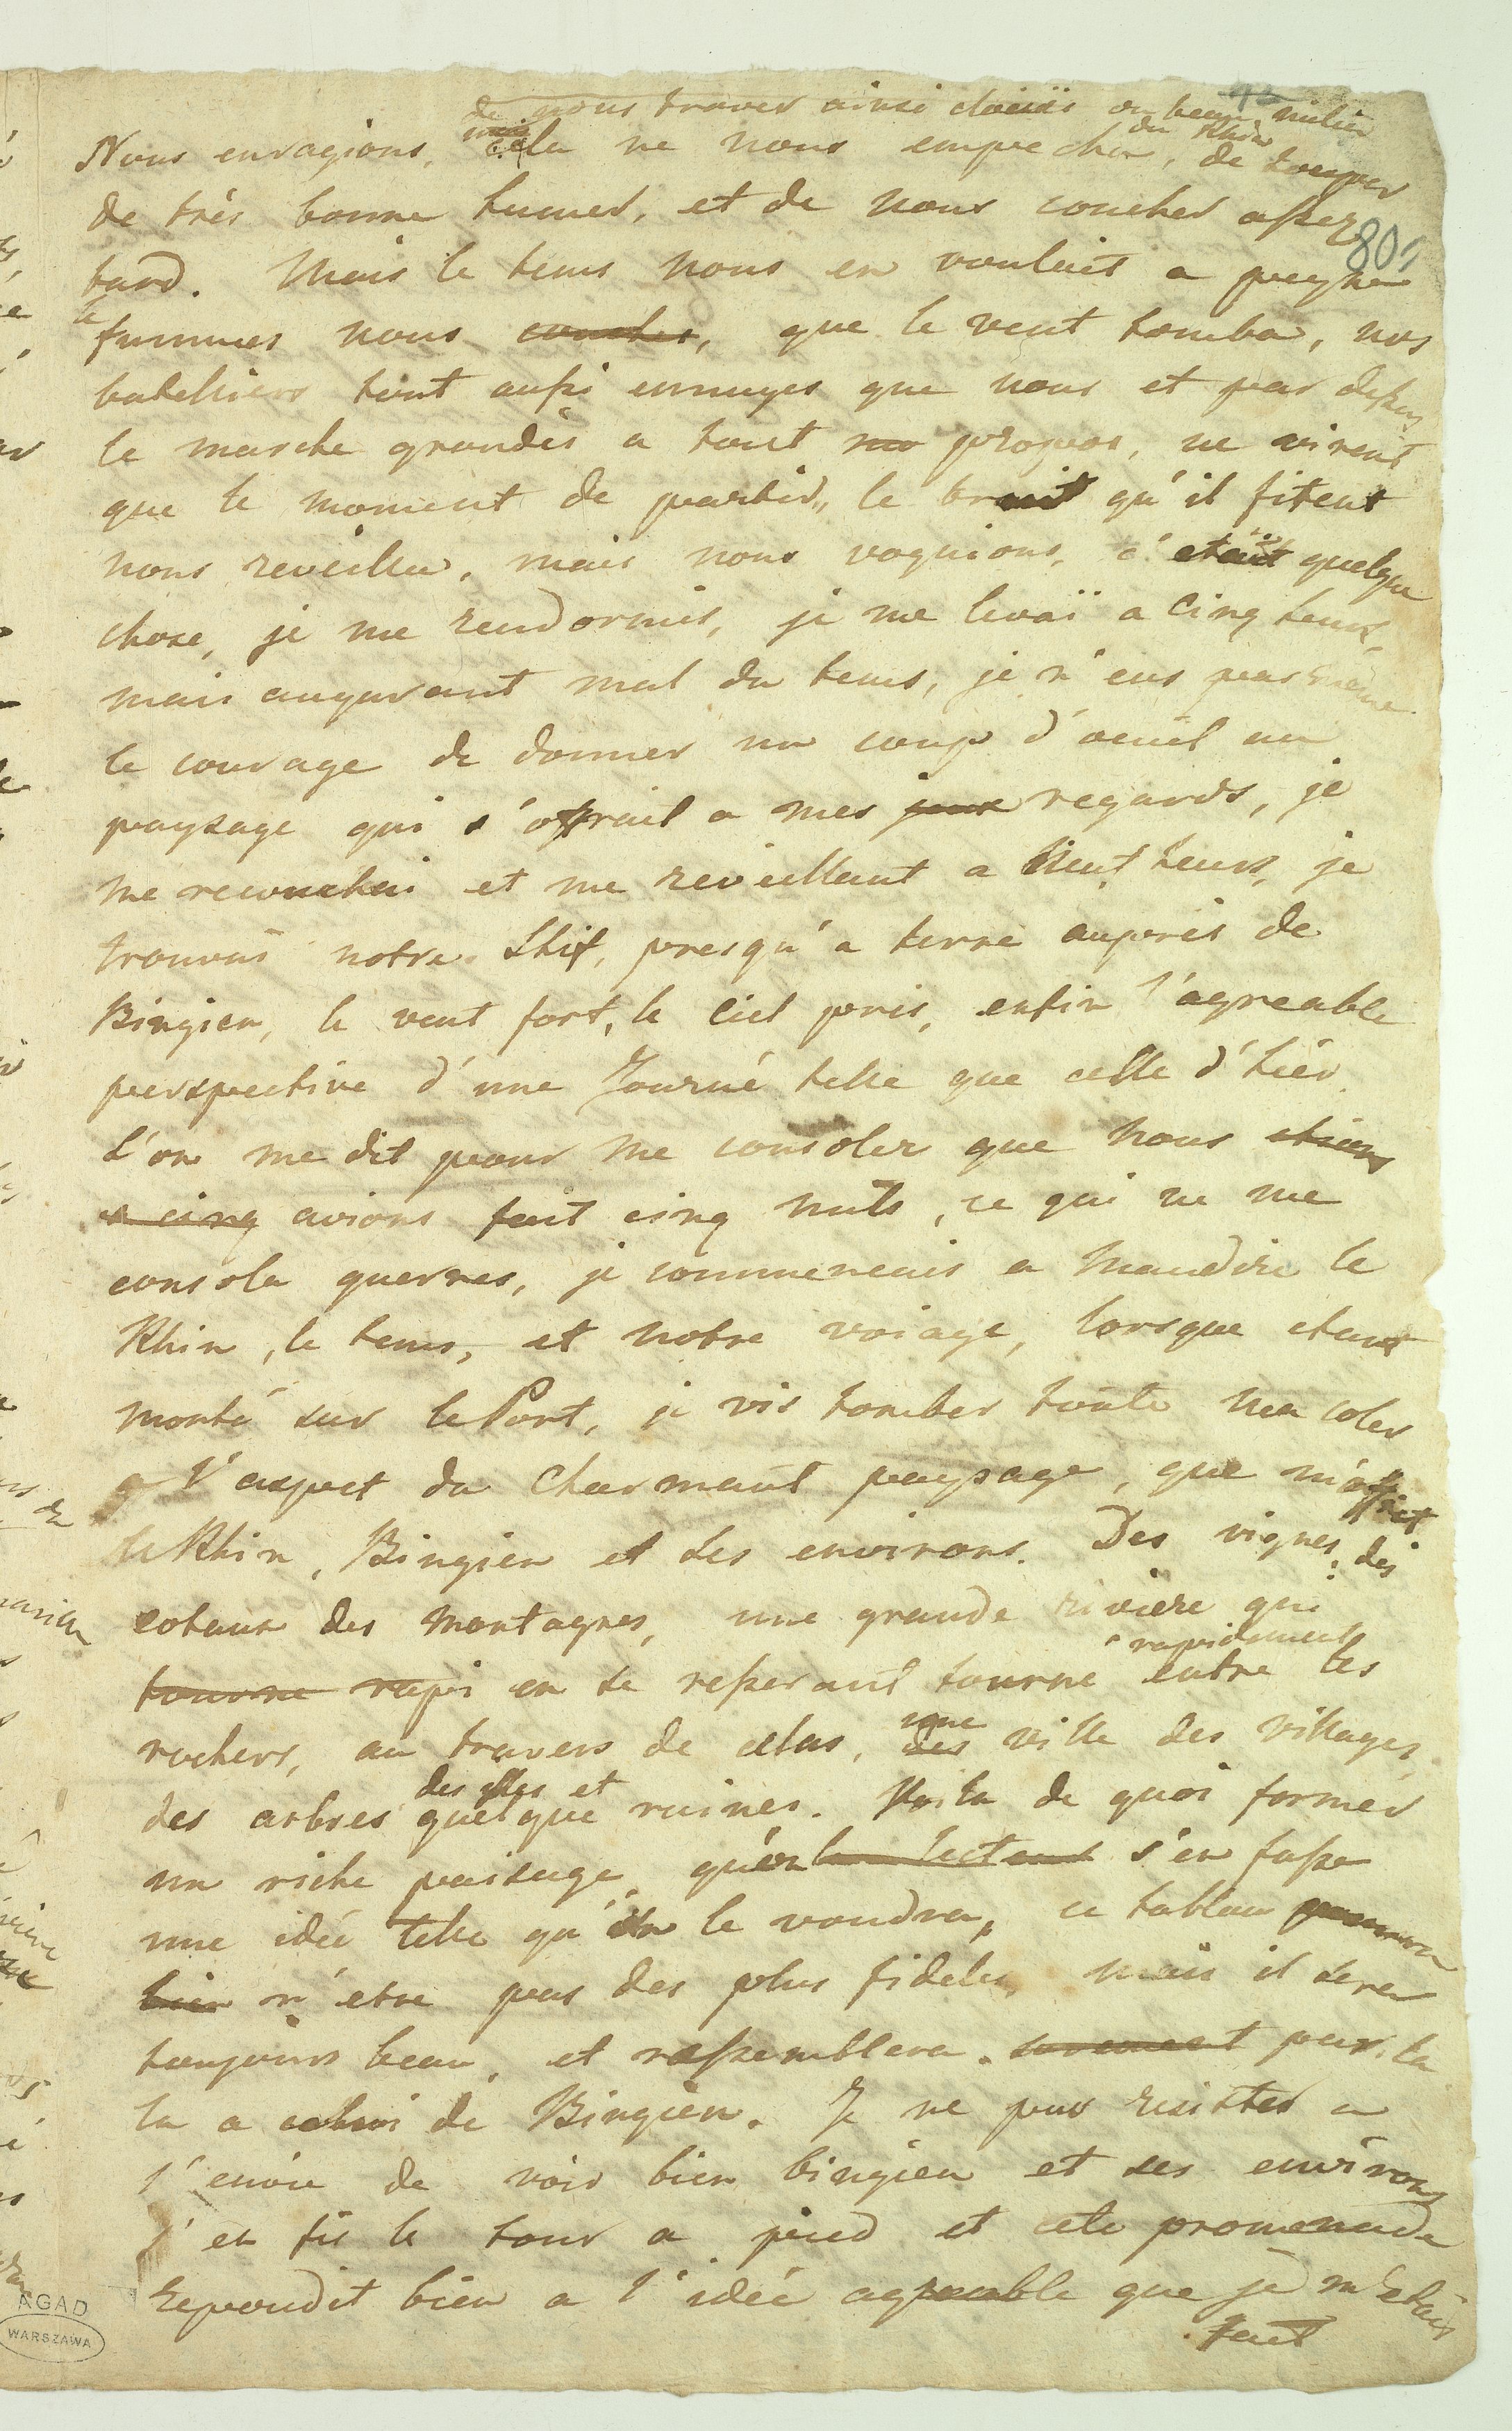 de nous trover ainsi au beau milieu
du Rhin
Nous enragions, cela ne nous empecha, de souper
de très bonne humer, et de nous coucher assez
80
tard. Mais le tems nous en voulait a peyne
fummes nous couches, que le vent tomba, nos
bateliers tout aussi ennuyes que nous et par dessus
le marche grondés a tout propos, ne virent
que le moment de partir, le bruit qu'il firent
nous reveilla, mais nous voguions, c'etait quelque
chose, je me rendormis, je me levaï a cinq heurs,
mais augurant mal du tems, je n'eus pas même
le courage de donner un coup d'oeuil au
paysage qui s'offrait a mes regards, je
me recouchai et me reveillant a heurs, je
trouvai notre Shif, presqu'a terre auprés de
Bingien, le vent fort, le Ciel pris, enfin l'agreable
perspective d'une Journé telle que celle d'hiér.
L'on me dit pour me consoler que nous etions
a cinq avions fait cinq mils, ce qui ne me
consola guerres, je commencais a maudire le
Rhin, le tems, et notre voiage, lorsque etant
monté sur le Pont, je vis tomber toute ma coler
a l'aspect du Charmant paysage, que m'offrait
le Rhin, Bingien et ses environs. Des vignes, des
cotaux des montagnes, une grande riviere qui
rapidement
tourne rapi en se resserant tourne entre les
rochers, au travers de celas, des ville des villages,
une
des isles et
des arbres quelque ruines. Voila de quoi former
un riche paisage, qu'on lecteur s'en fasse
une idée telle qu'on le voudra, ce tablau
bien n'etre pas des plus fideles mais il sera
toujours beau, et rassemblera par la
la a celui de Bingien. Je ne pus resister a
l'envie de voir bien bingien et ses environs
j'en fis le tour a pied et cete promenade
repondit bien a l'idée agreable que je m'etais
fait
AGAD
WARSZAWA